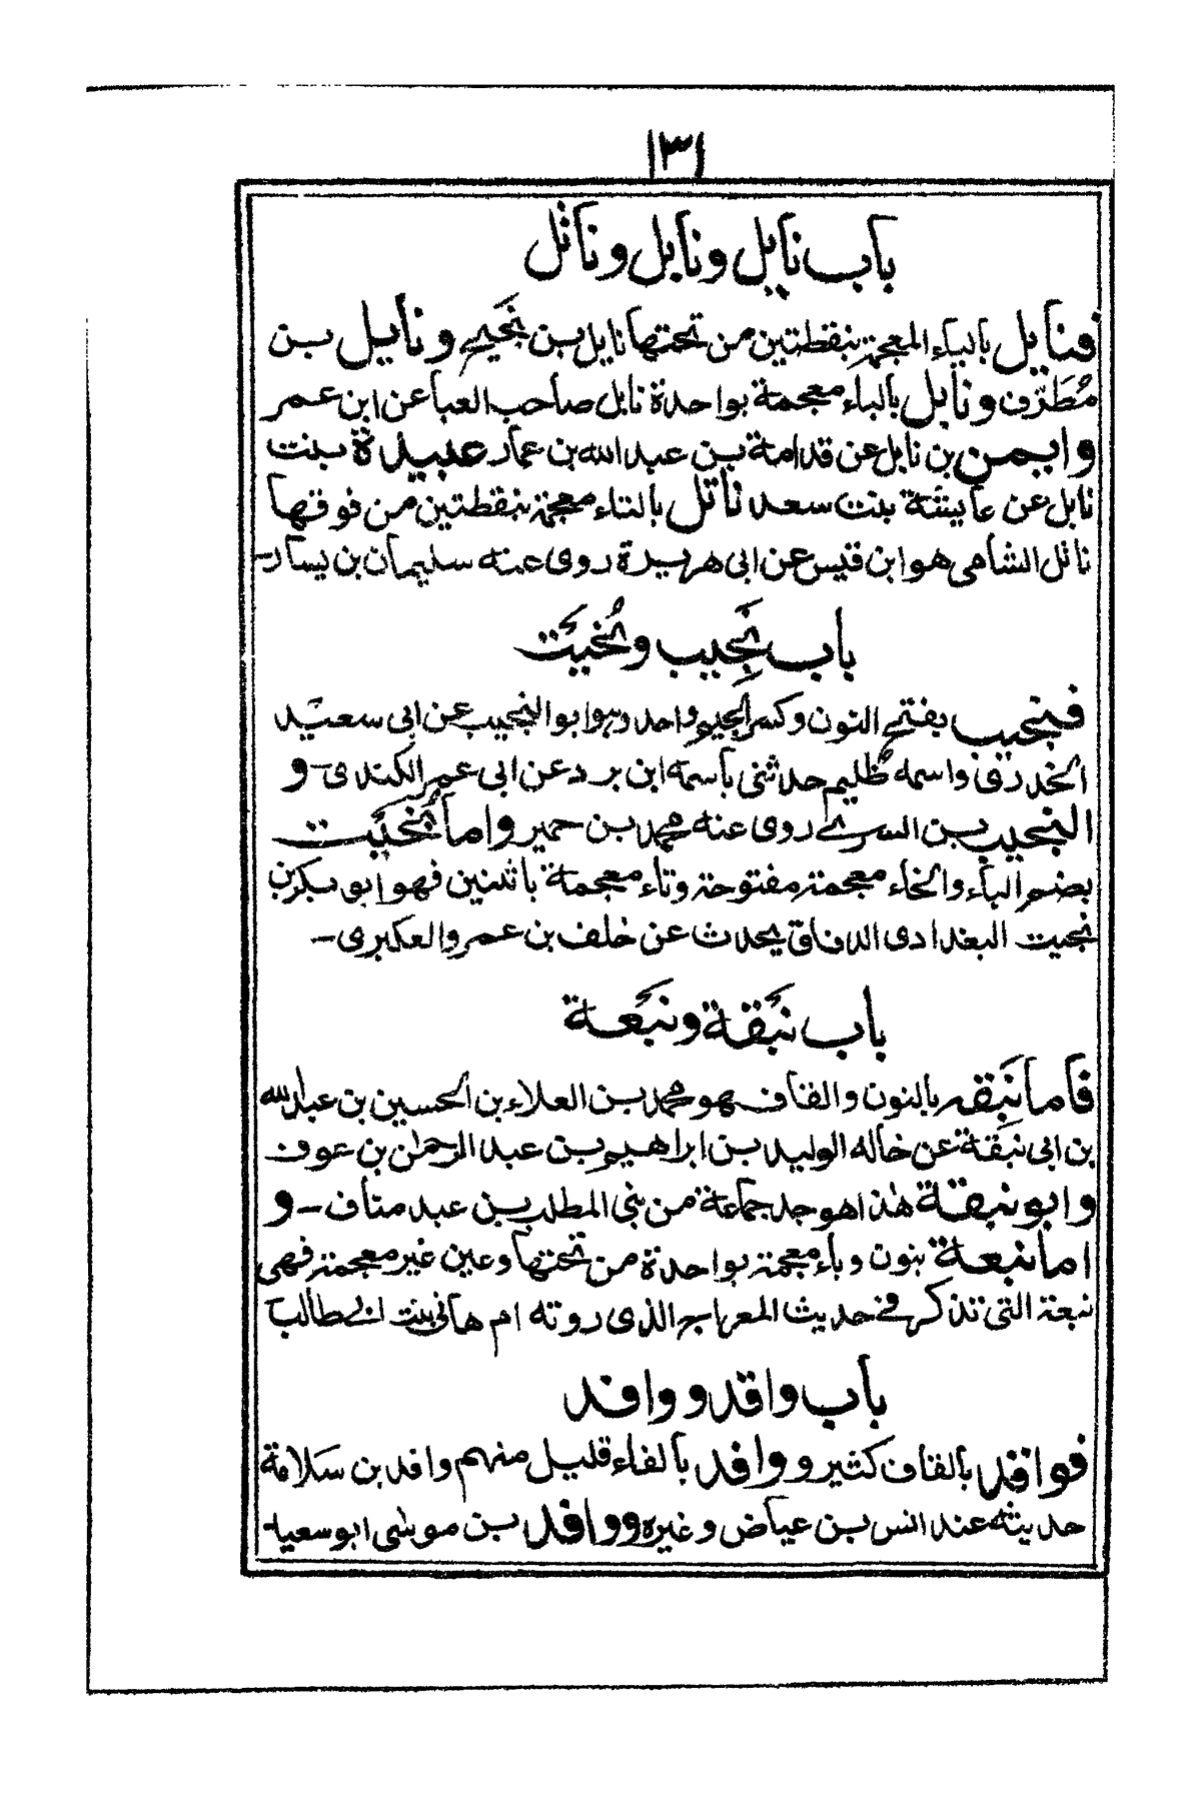 ١٣١
باب نايل ونابل وناتل
فنايل بالياء المعجمة بنقطتين من تحتها نايل بن نجيح ونايل بن
مُطَرِّف ونابل بالباء معجمة بواحدة نابل صاحب العبا عن ابن عمر
وايمن بن نابل عن قدامة بن عبد الله بن عمار عبيدة بنت
نابل عن عايشة بنت سعد ناتل بالتاء معجمة بنقطتين من فوقها
ناتل الشامى هو ابن قيس عن ابى هريرة روى عنه سليمان بن يسار-
باب نَجِيب وبُخَيت
فنجيب بفتح النون وكسر الجيم واحد وهو ابو النجيب عن ابى سعيد
الخدرى واسمه ظُليم حدثنى باسمه ابن برد عن ابى عمر الكندى - و
النجيب بن السرى روى عنه محمد بن حمير واما بُخَيت
بضم الباء والخاء معجمة مفتوحة وتاء معجمة باثنين فهو ابو بكر بن
بخيت البغدادى الدقاق يحدث عن خلف بن عمرو العكبرى -
باب نَبقة ونَبعة
فاما نَبِقه بالنون والقاف فهو محمد بن العلاء بن الحسين بن عبد الله
بن ابى نبقة عن خاله الوليد بن ابراهيم بن عبد الرحمٰن بن عوف
وابو نبقة هذا هو جد جماعة من بنى المطلب بن عبد مناف - و
اما نبعة بنون وباء معجمة بواحدة من تحتها وعين غير معجمة فهى
نبعة التى تذكر فى حديث المعراج الذى روته ام هانى بنت ابى طالب
باب واقد و وافد
فواقد بالقاف كثير و وافد بالفاء قليل منهم وافد بن سلامة
حديثه عند انس بن عياض وغيره ووافد بن موسى ابو سعيا-